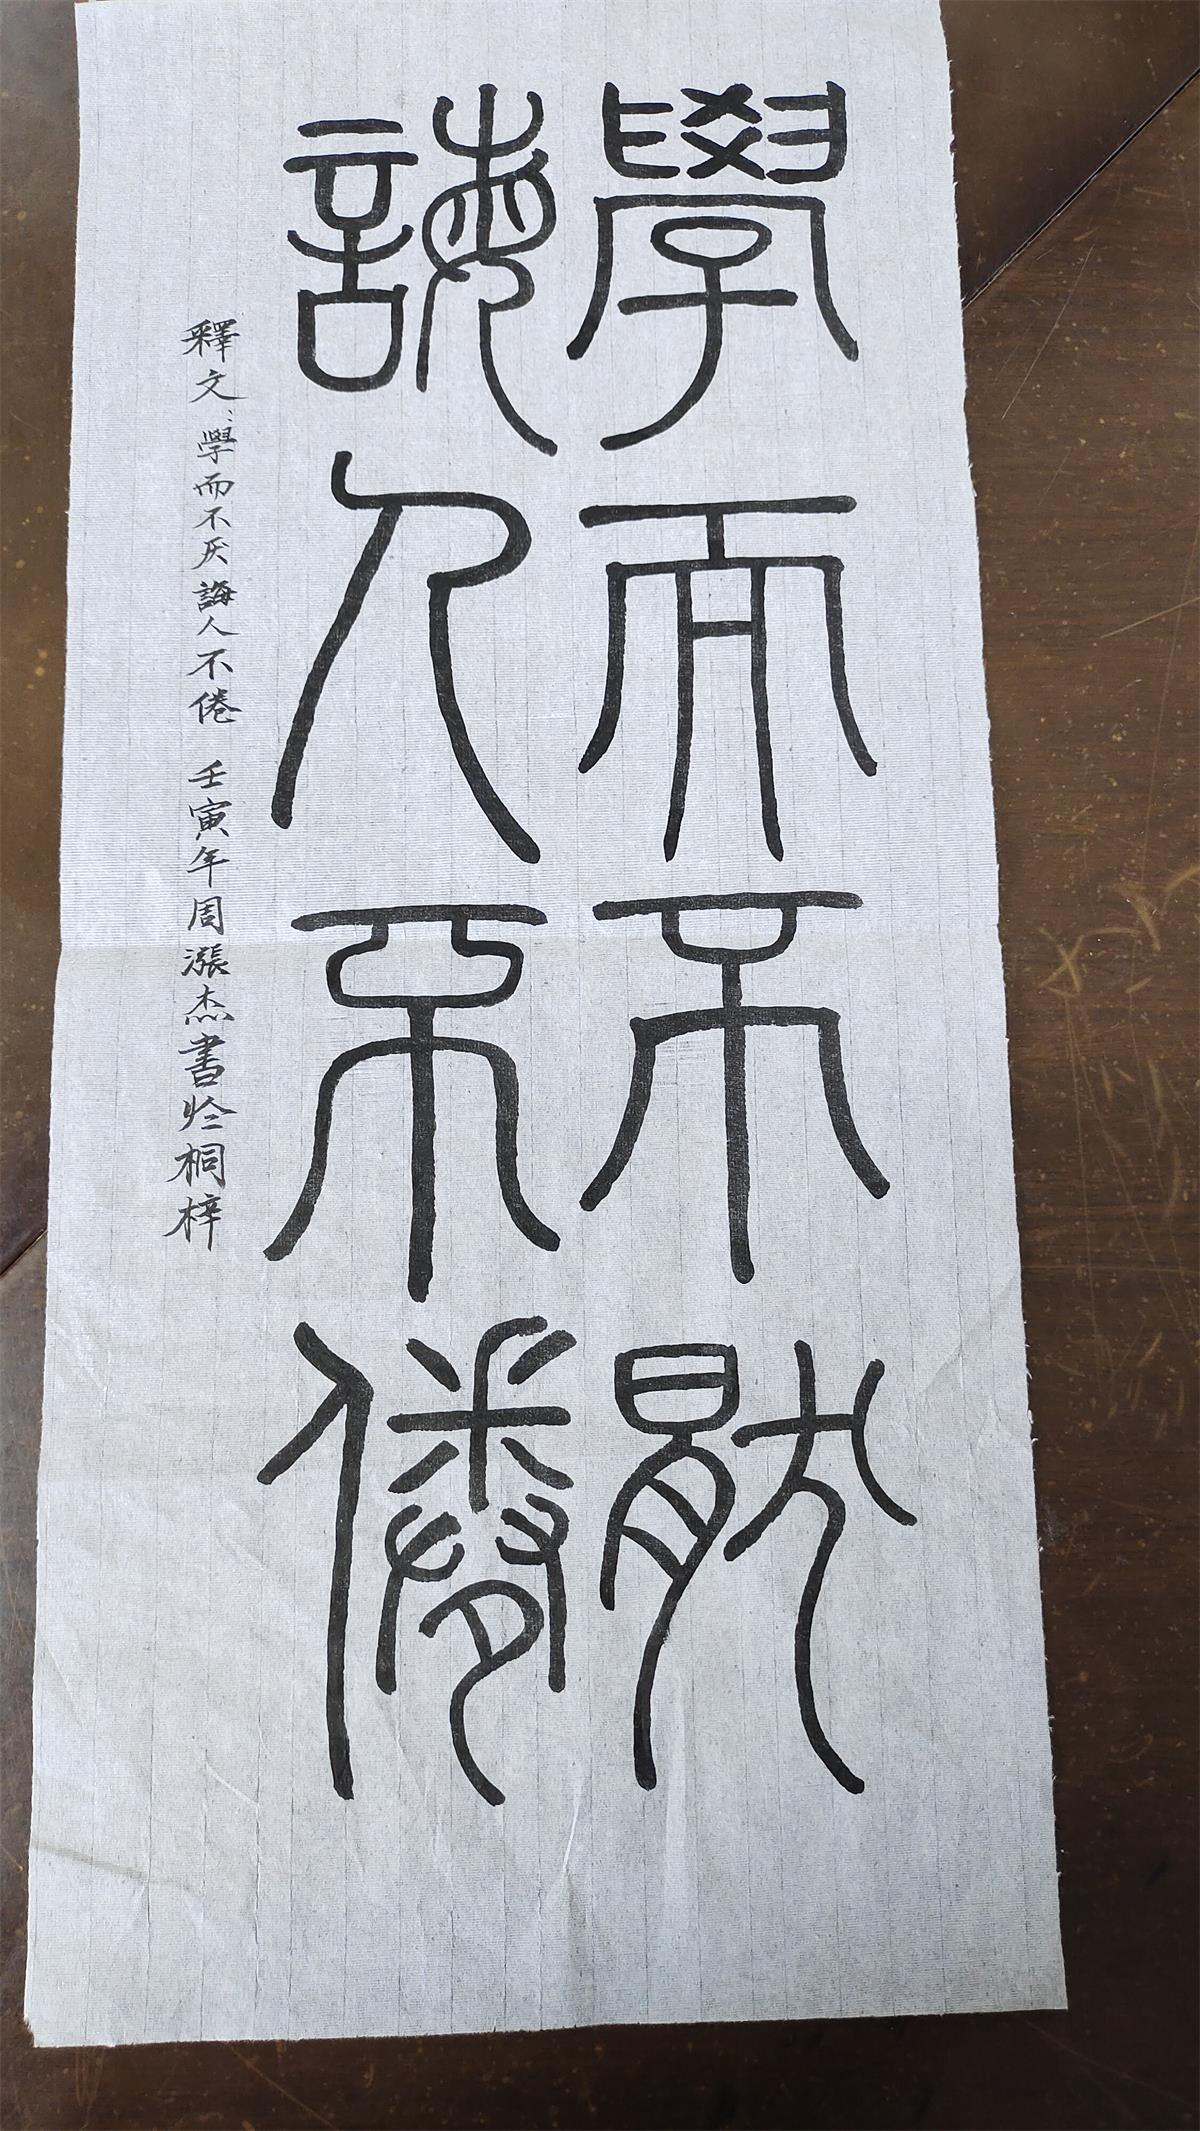 學而不猒
誨人不倦
釋文：學而不厌誨人不倦 壬寅年周漲杰書於桐梓